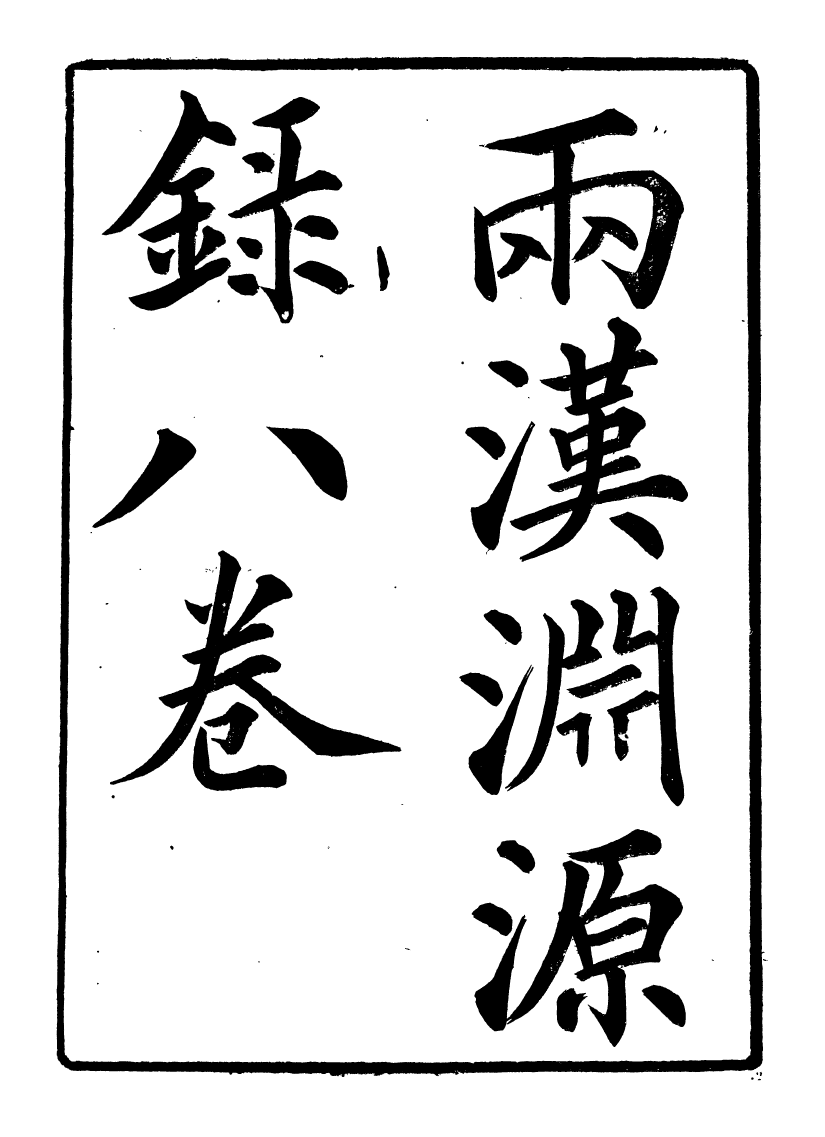 兩漢淵源
錄八卷